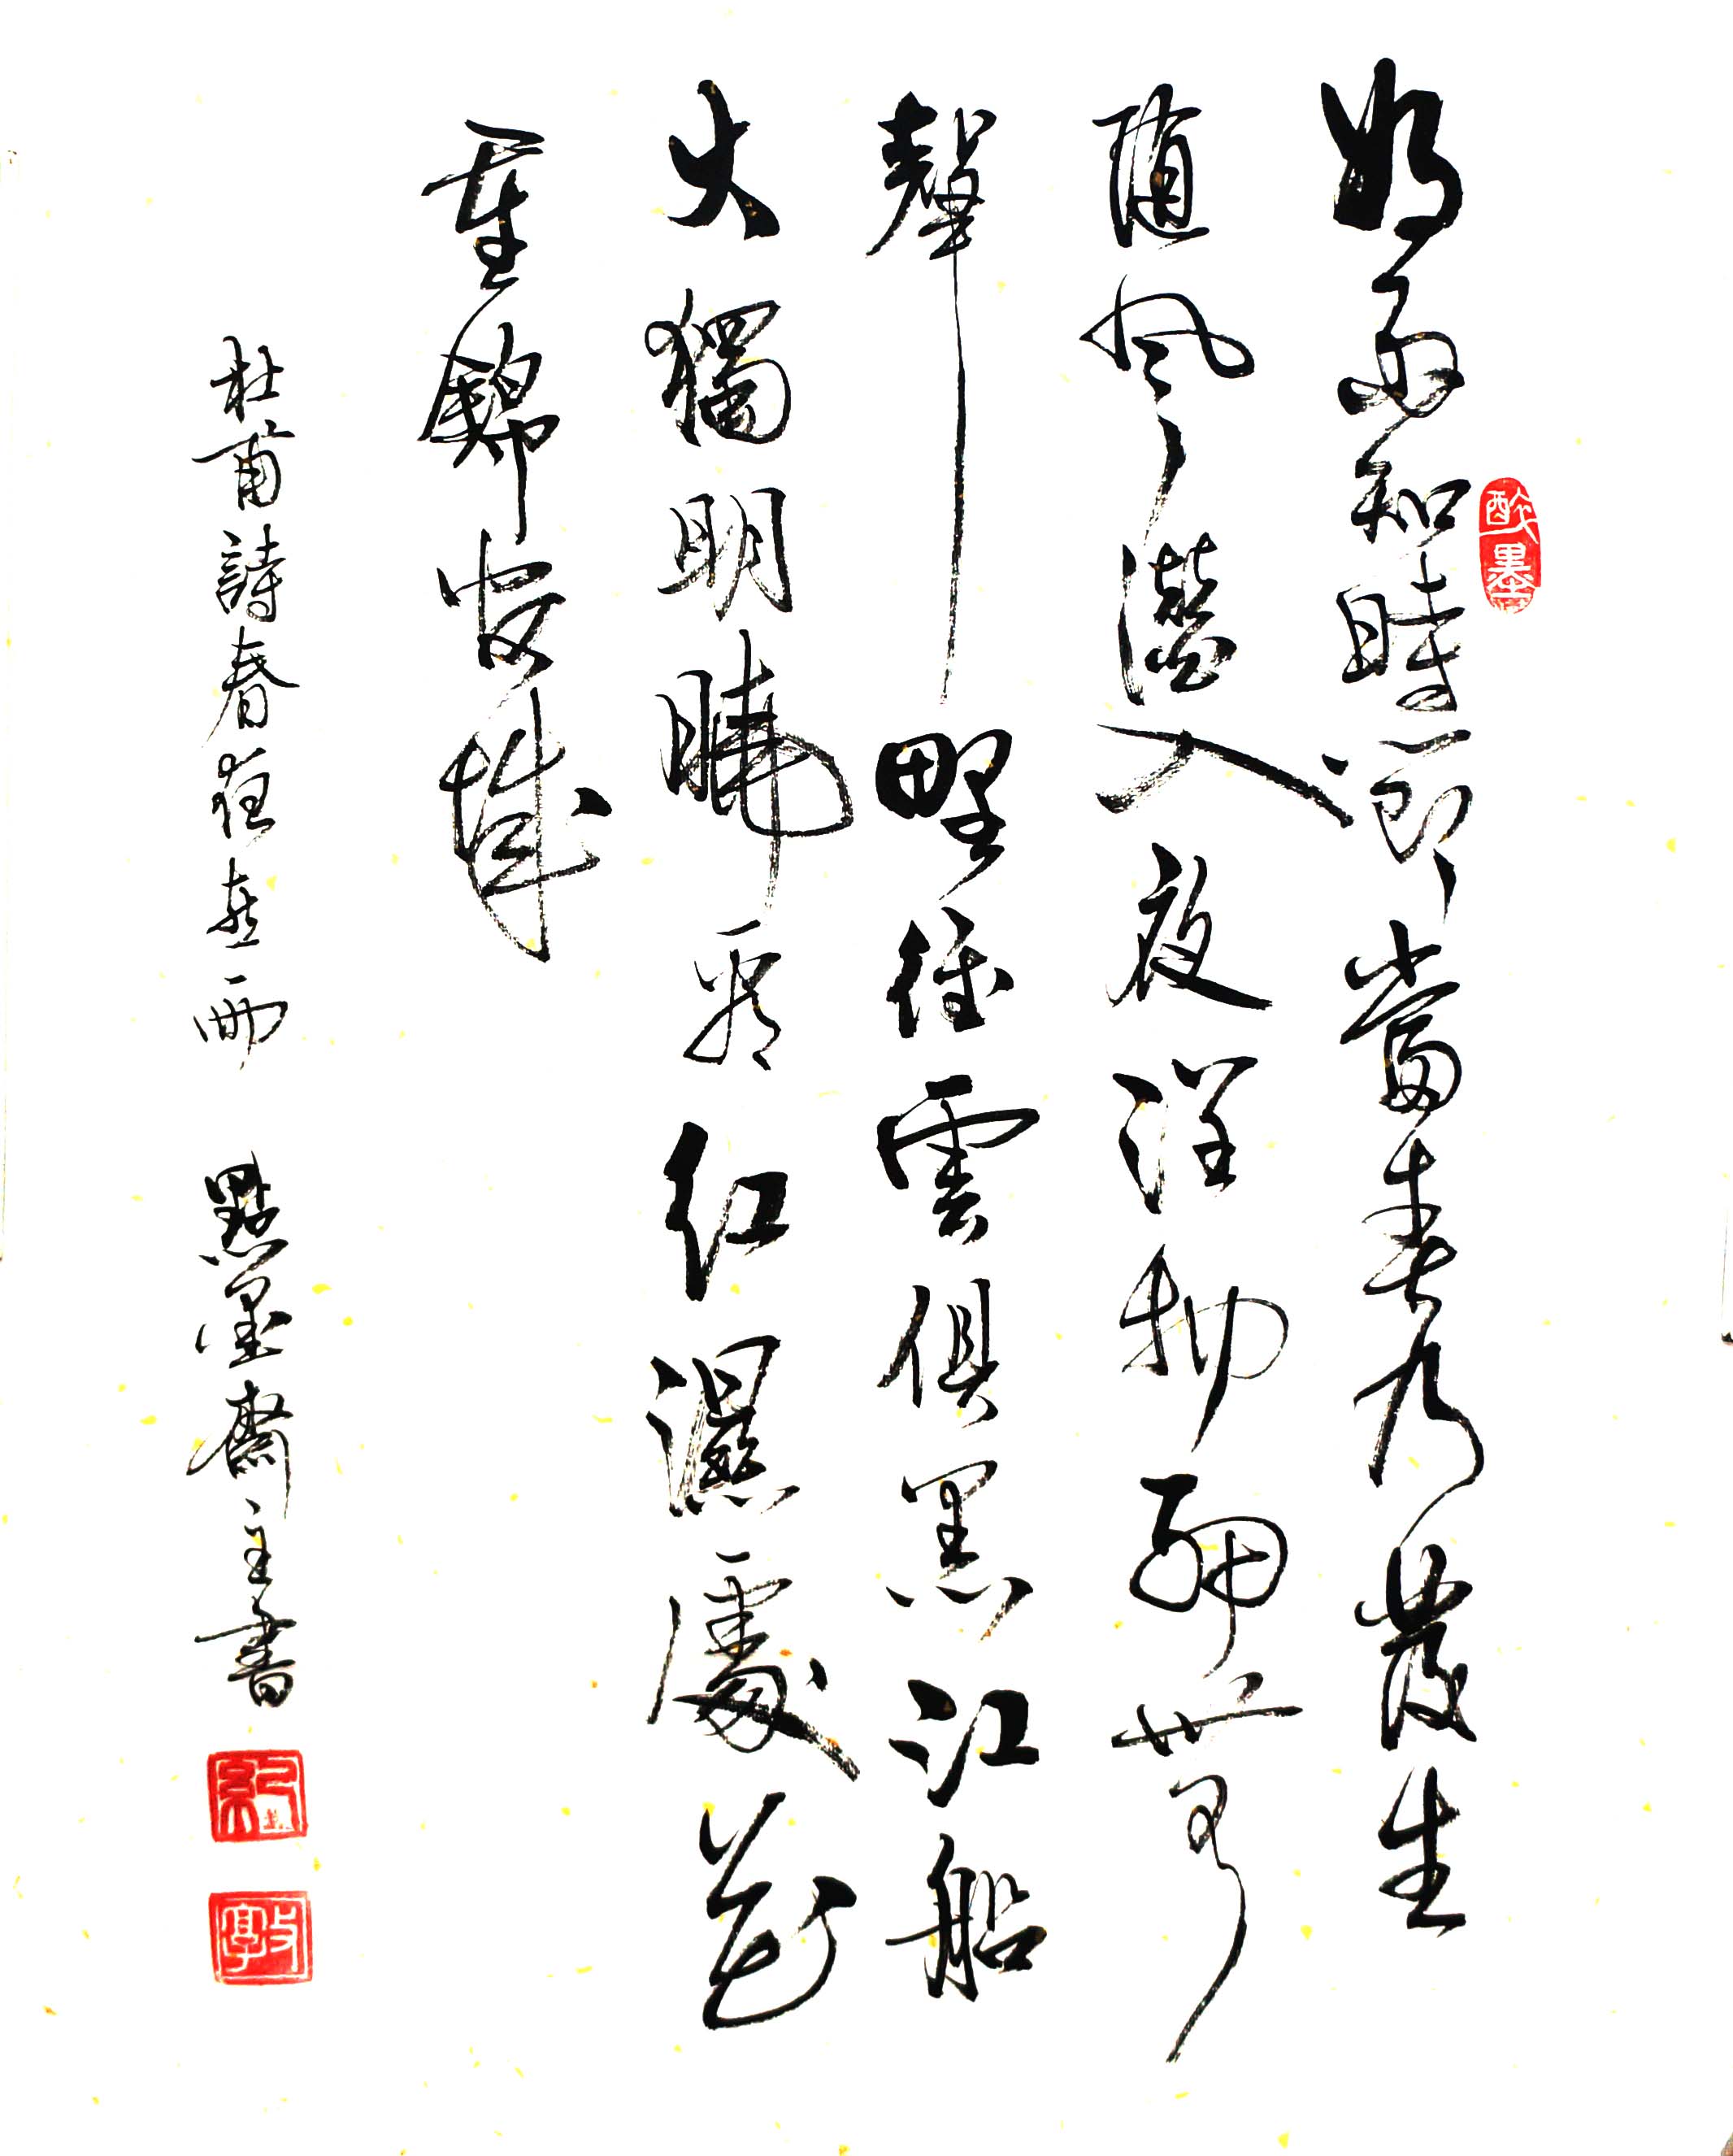 好雨知時節當春乃發生
醉墨
隨風潛入夜潤物細無
聲野徑雲俱黑江船
火獨明曉看紅濕處花
重錦官城
杜甫詩春夜喜雨 點墨齋主書
紀
敦